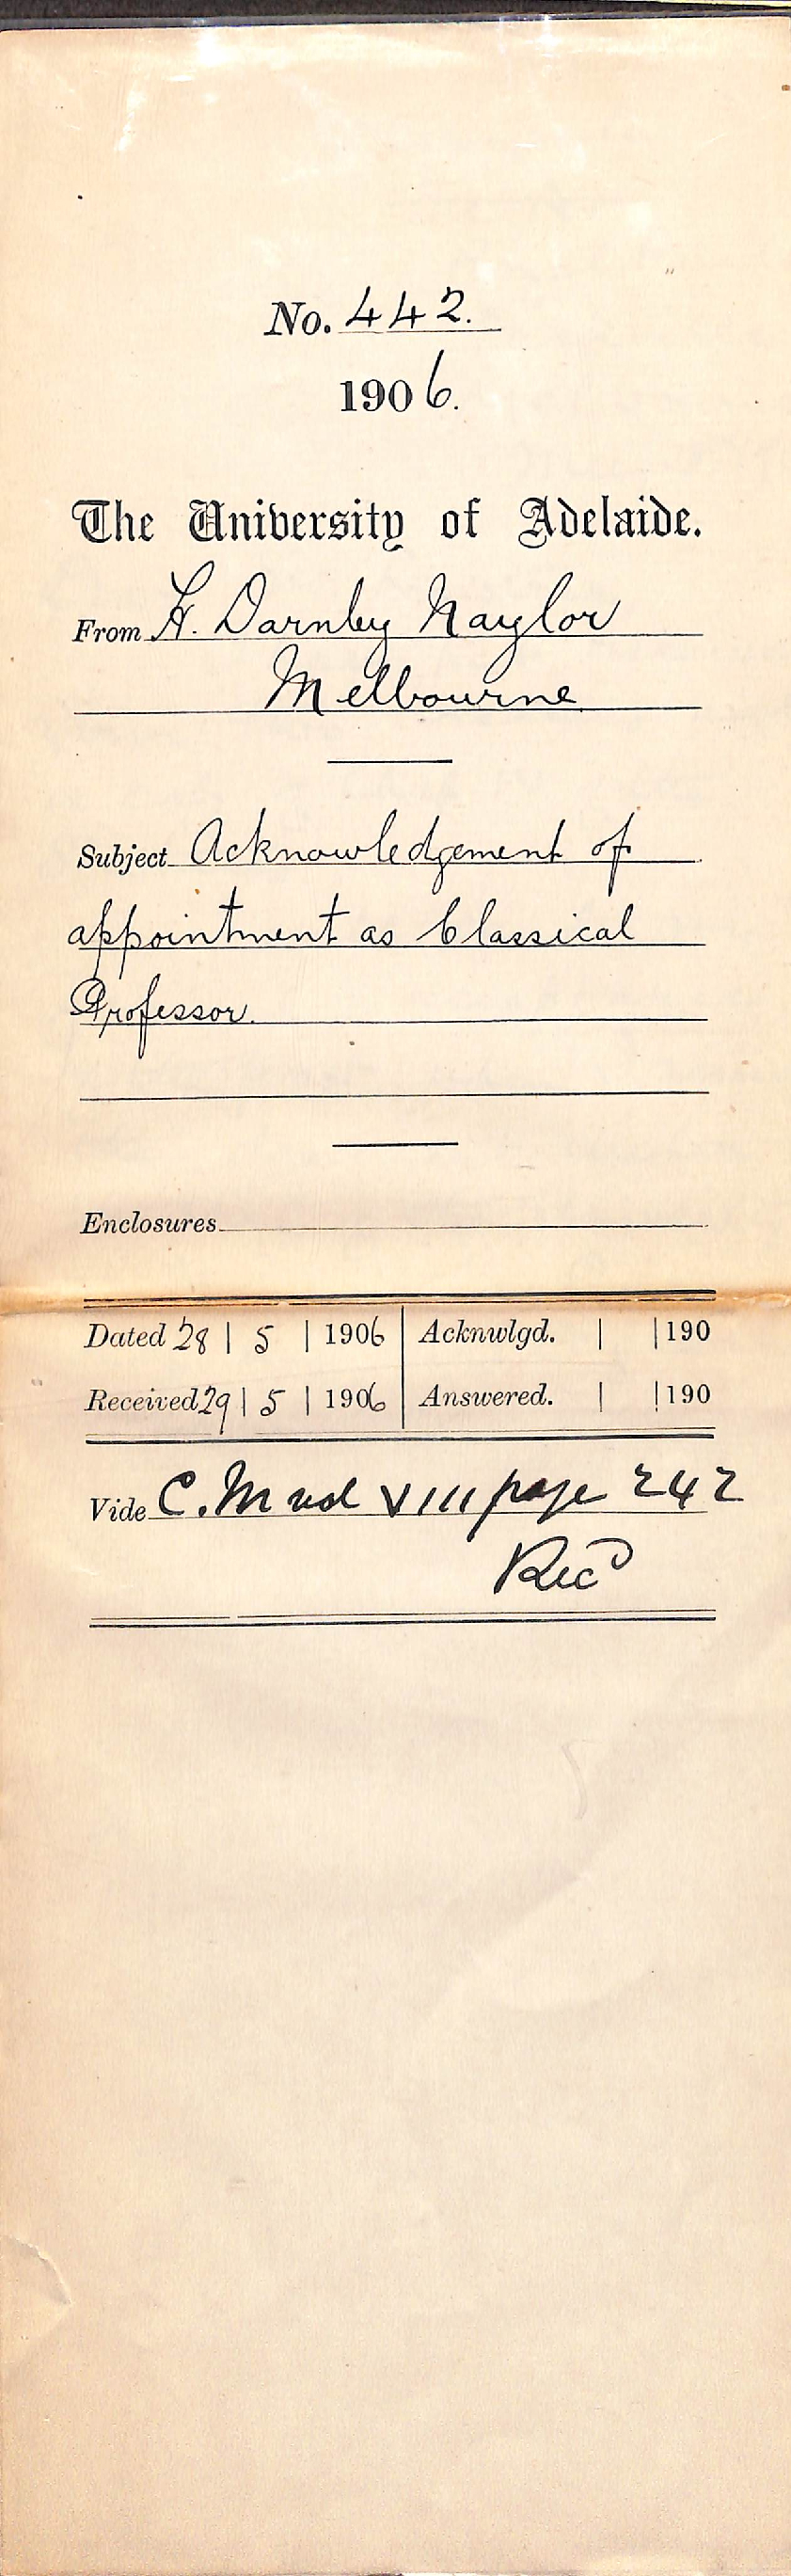 No. 442.
1906.
The University of Adelaide.
From H. Darnley Naylor
Melbourne
Subject Acknowledgement of
appointment as Classical
Professor.
Enclosures
Dated 28 | 5 | 1906 | Acknwlgd. | | 190
Received 29 | 5 | 1906 | Answered. | | 190
Vide C.M vol VIII page 242
Recd